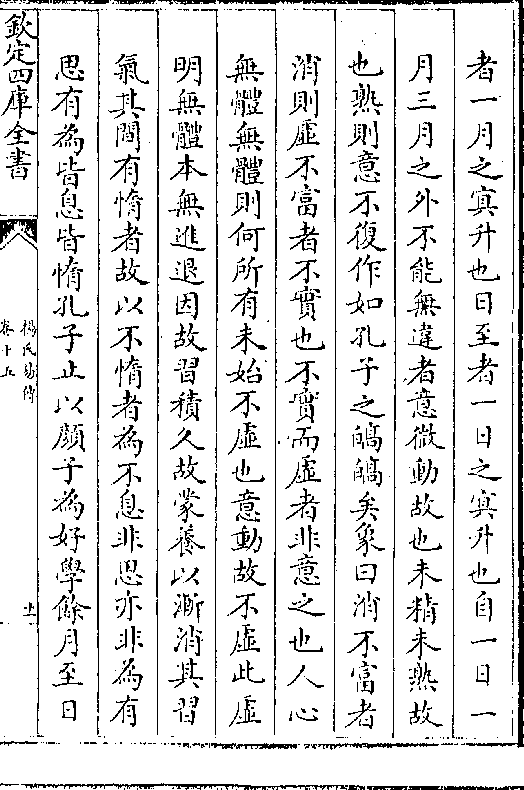 者一月之冥升也日至者一日之冥升也自一日一
月三月之外不能無違者意微動故也未精未熟故
也熟則意不復作如孔子之皜皜矣象曰消不富者
消則虛不富者不實也不實而虛者非意之也人心
無體無體則何所有未始不虛也意動故不虛此虛
明無體本無進退因故習積久故蒙養以漸消其習
氣其間有惰者故以不惰者為不息非思亦非為有
思有為皆息皆惰孔子止以顔子為好學餘月至日
欽定四庫全書
楊氏易傳
卷十五
十一